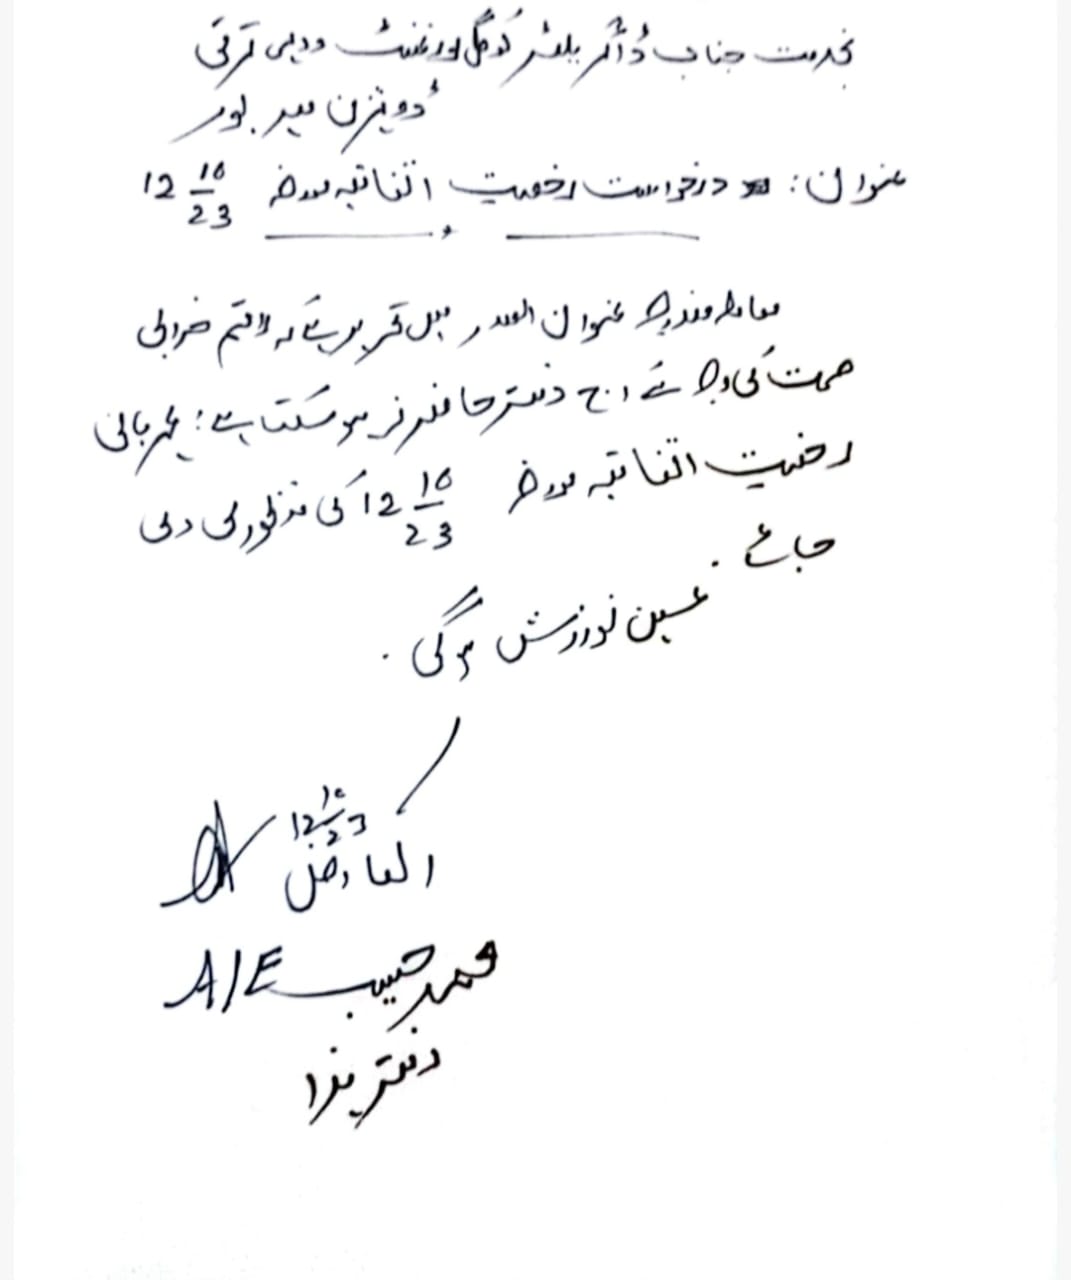 بخدمت جناب ڈائریکٹر لوکل گورنمنٹ و دیہی ترقی
ڈویژن میر پور
عنوان: درخواست رخصت اتفاقیہ مورخہ 12 10/23
معاملہ مندرجہ عنوان الصدر میں تحریر ہے کہ لاقم خرابی
صحت کی وجہ سے آج دفتر حاضر نہ ہو سکتا ہے؛ مہربانی
رخصت اتفاقیہ مورخہ 12 10/23 کی منظوری دی
جائے.
عین نوازش ہوگی.
12 10/23
العارض
محمد حبیب A/E
دفتر ہذا